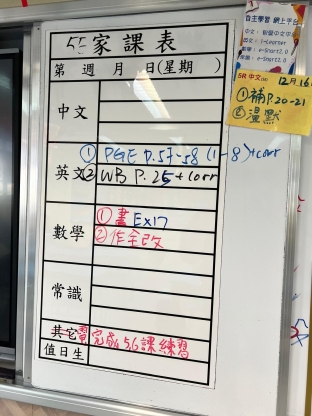 5E 家課表
第 週 月 日(星期 )
中文
英文
① PGE P.57-58 (1-8)+corr
② WB P.25+corr
數學
① 書 Ex17
② 作全改
常識
其它
完成5,6課練習
值日生
自主學習 網上平台
5R 中文
12月16
①補P.20-21
②溫默